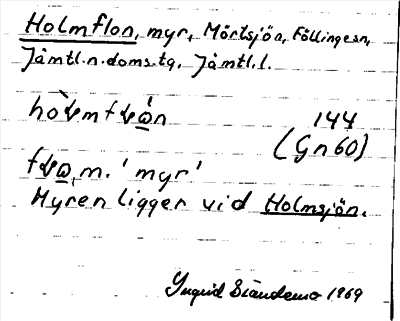 Holmflon, myr, Mörtsjön, Föllinge sn,
Jämtl.n.doms.tg, Jämtl.l.
144
(Gn 60)
m. 'myr'
Myren ligger vid Holmsjön.
Ingrid 1969